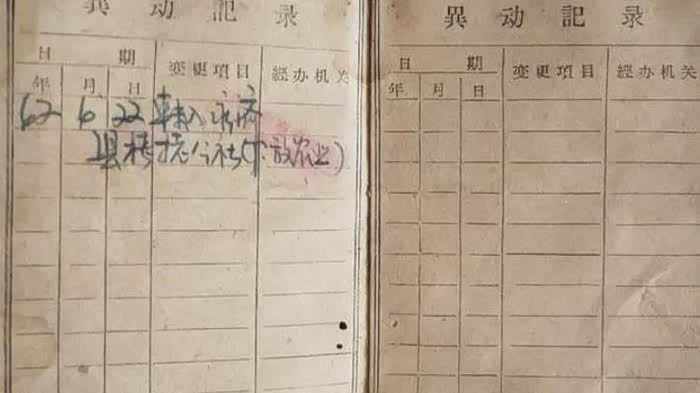 異动記录
日期 变更項目 經办机关
年 月 日
62 6 22 转入
县 公社(下放农业)
異动記录
日期 变更項目 經办机关
年 月 日